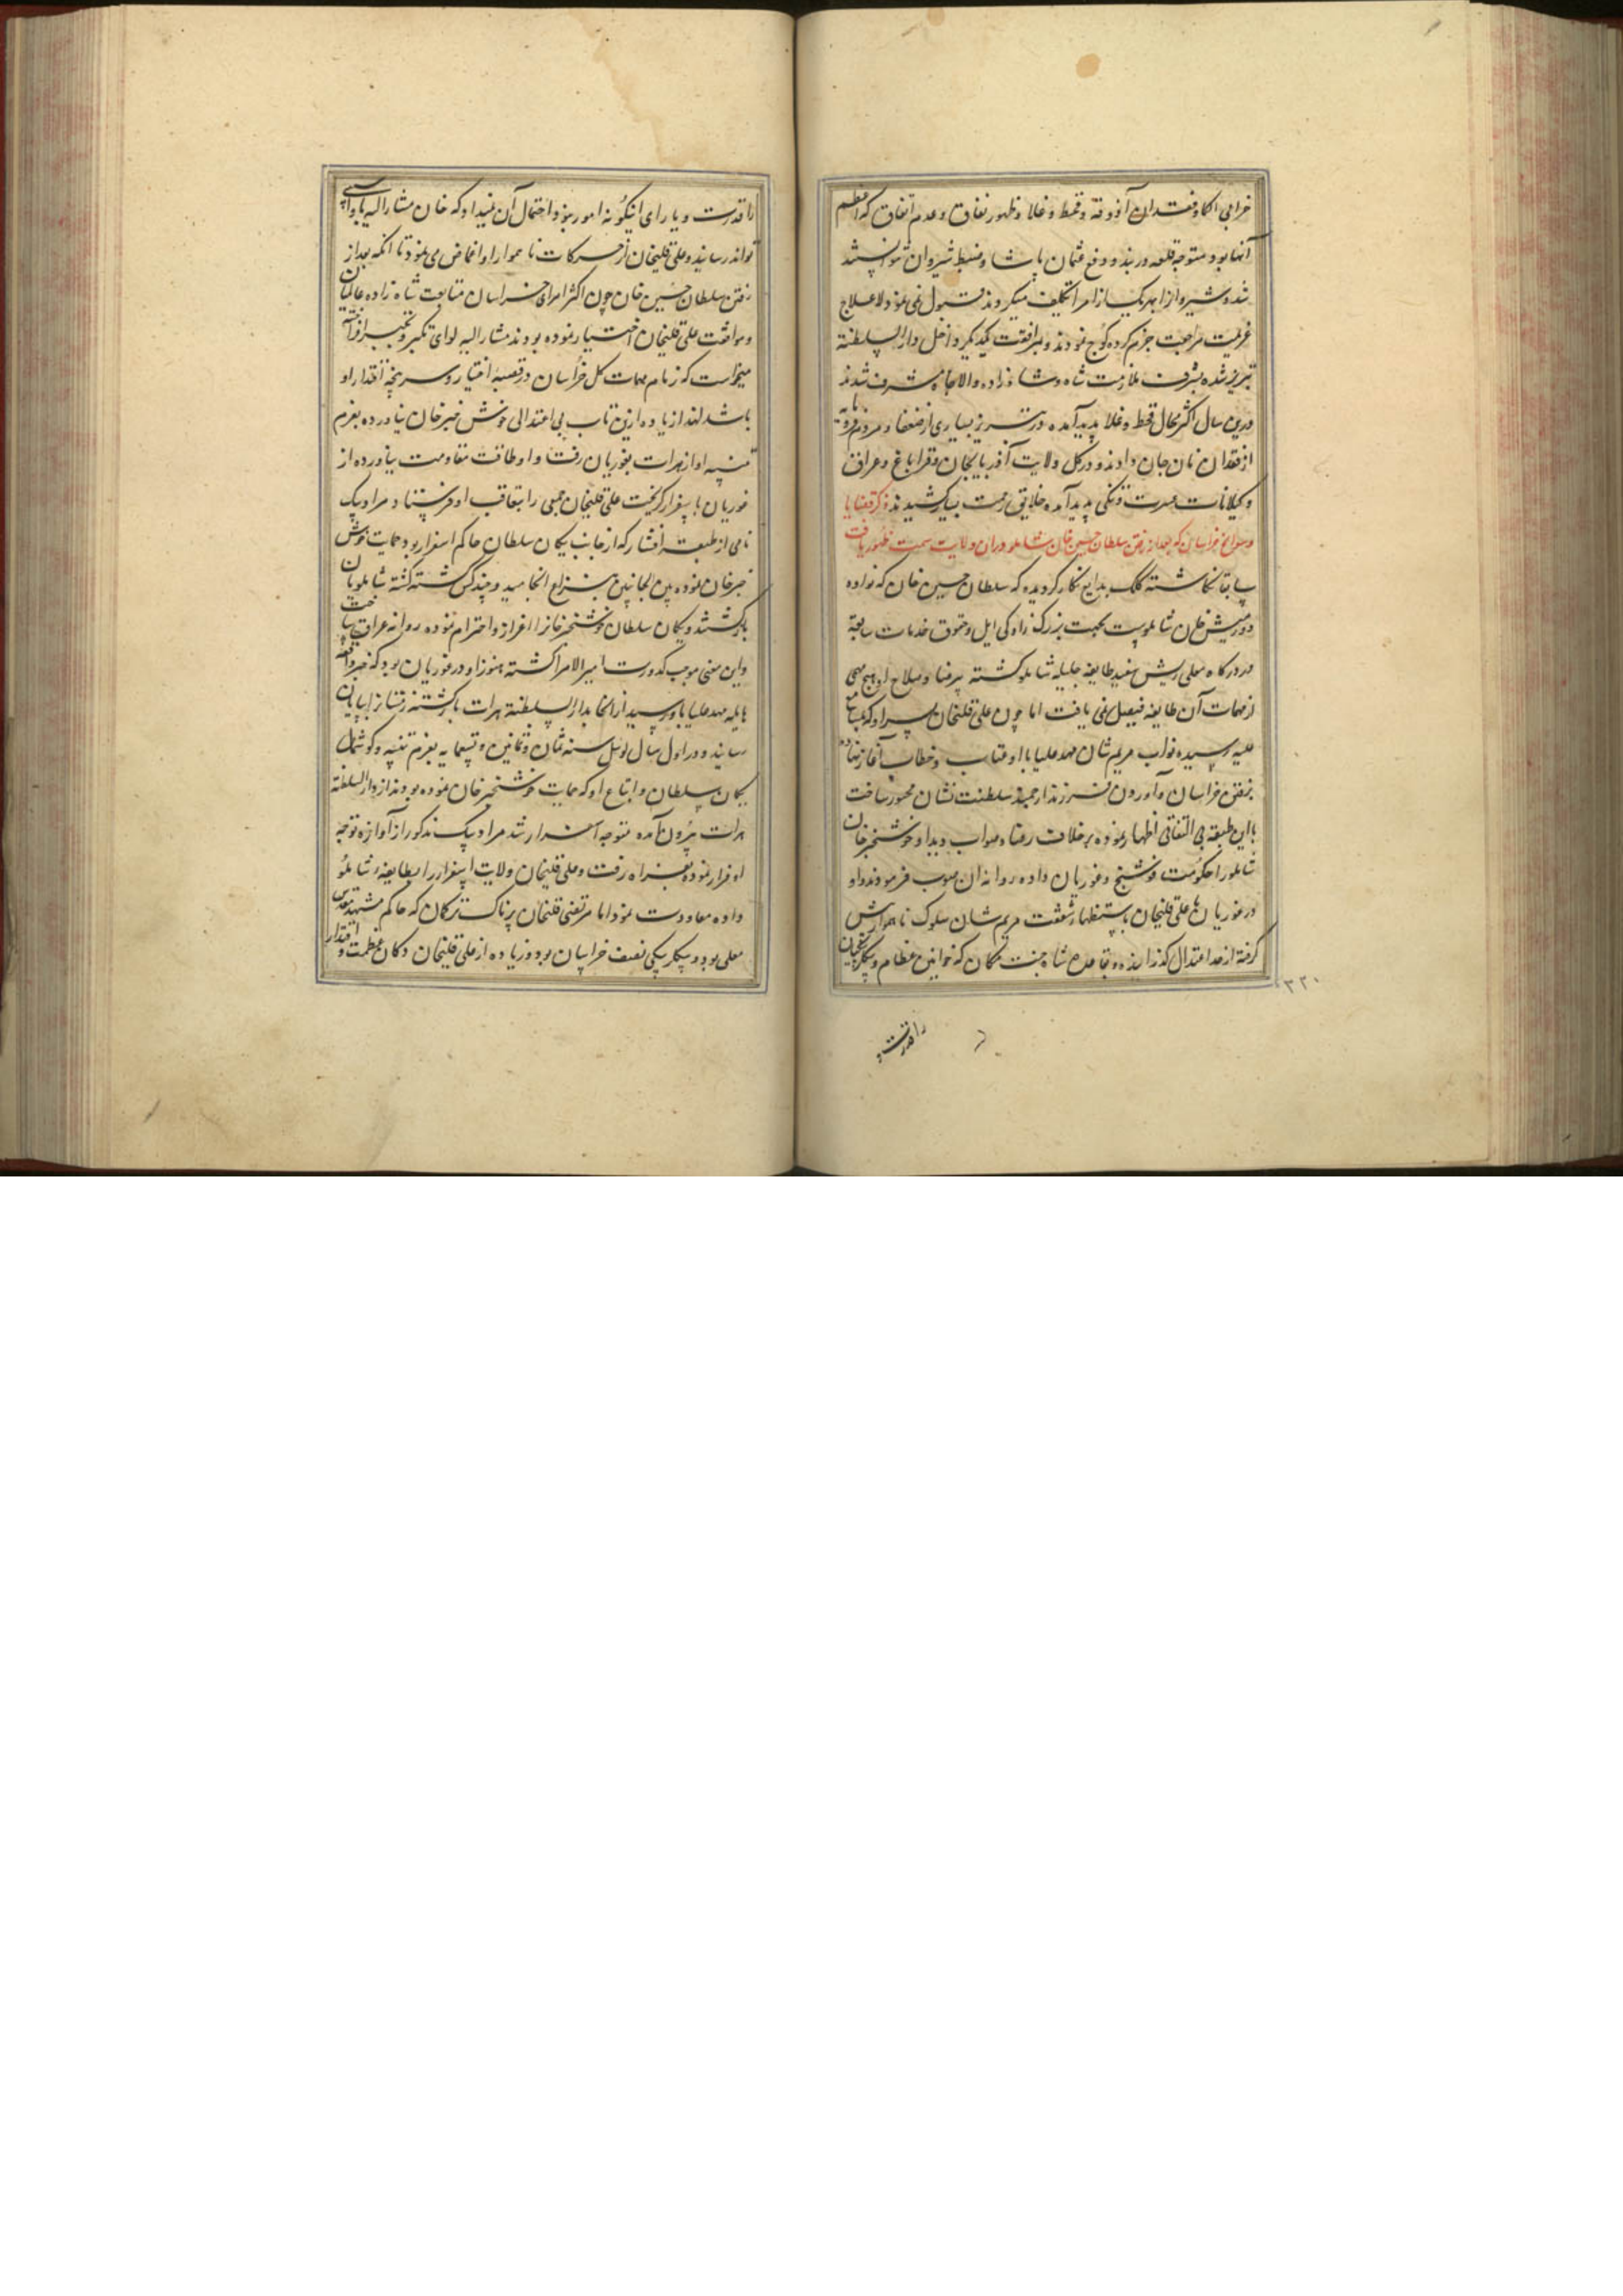 خرابی الکا و فقدان آذوقه و قحط و غلا و ظهور نفاق و عدم اتفاق که اعظم
آنها بود متوجه قلعه دربند و دفع عثمان پاشا و ضبط شیروان توانند شد
شد و شیروانرا بهر یک از امرا تکلیف میکردند قبول نمی نمود لاعلاج
عزیمت مراجعت جزم کرده کوچ نمودند و بمرافقت یکدیگر داخل دارالسلطنة
تبریز شده بشرف ملازمت شاه و شاهزاده والاجاه مشرف شدند
درین سال اکثر محال قحط و غلا پدید آمده در تبریز بسیاری از ضعفا و مردم فرومایه
از فقدان نان جان دادند و در کل ولایت آذربایجان و قراباغ و عراق
و گیلانات عسرت و تنگی پدید آمده خلایق زحمت بسیار کشیدند ذکر قضایا
و سوانح خراسان که بعد از رفتن سلطان حسین خان شاملو دران ولایت سمت ظهور یافت
سابقا نگاشته کلک بدایع نگار گردیده که سلطان حسین خان که نواده
دورمیش خان شاملوست بجهت بزرگ زادگی ایل و حقوق خدمات سابقه
در درگاه معلی ریش سفید طایفه جلیله شاملو گشته بی رضا و صلاح او هیچ مهمی
از مهمات آن طایفه فیصل نمی یافت اما چون علی قلیخان پسر او که بمسامع
علیه رسیده نواب مریم شان مهد علیا با او عتاب و خطاب آغاز نهاده
برفتن خراسان و آوردن فرزند ارجمند سلطنت نشان مجبور ساخت
با این طبقه بی التفاتی اظهار نموده بر خلاف رضا و صواب دید او خوشخبر خان
شاملو را حکومت فوشنج و غوریان داده روانه ان صوب فرمودند و او
در غوریان با علی قلیخان باستظهار شفقت مریم شان سلوک ناهموار پیش
گرفته از حد اعتدال گذرانیده و بقاعده شاه جنت مکان که خوانین عظام و بیگلربیگیان
۳۲۰
را قدرت و
را قدرت و یارای اینگونه امور نبود احتمال آن نمیداد که خان مشارالیه باو آسیبی
تواند رسانید و علی قلیخان از حرکات ناهموار او اغماض می نمود تا انکه بعد از
رفتن سلطان حسین خان چون اکثر امرای خراسان متابعت شاه زاده عالمیان
و موافقت علی قلیخان اختیار نموده بودند مشارالیه لوای تکبر و تجبر افراخته
میخواست که زمام مهمات کل خراسان در قبضه اختیار و سرپنجه اقتدار او
باشد لهذا زیاده ازین تاب بی اعتدالی خوش خبر خان نیاورده بعزم
تنبیه او از هرات بغوریان رفت و او طاقت مقاومت نیاورده از
غوریان باسفزار گریخت علی قلیخان جمعی را بتعاقب او فرستاد و مراد بیک
نامی از طبقه افشار که از جانب یکان سلطان حاکم اسفزار بود حمایت خوش
خبر خان نموده بین الجانبین بنزاع انجامید و چند کس کشته گشته شاملویان
بازگشتند و یکان سلطان خوشخبر خانرا اعزاز و احترام نموده روانه عراق ساخت
و این معنی موجب کدورت امیرالامرا گشته هنوز او در غوریان بود که خبر واقعه
هایله مهد علیا باو رسید از انجا بدارالسلطنة هرات بازگشته زمستانرا بپایان
رسانید و در اول سال لوئیل سنه ثمان و ثمانین و تسعمایه بعزم تنبیه و گوشمال
یکان سلطان و اتباع او که حمایت خوشخبر خان نموده بودند از دارالسلطنة
هرات بیرون آمده متوجه اسفزار شد مراد بیک مذکور از آوازه توجه
او فرار نموده بفراه رفت و علی قلیخان ولایت اسفزار را بطایفه شاملو
داده معاودت نمود اما مرتضی قلیخان پرناک ترکمان که حاکم مشهد مقدس
معلی بود و بیگلربیگی نصف خراسان بود و زیاده از علی قلیخان دکان عظمت و اقتدار